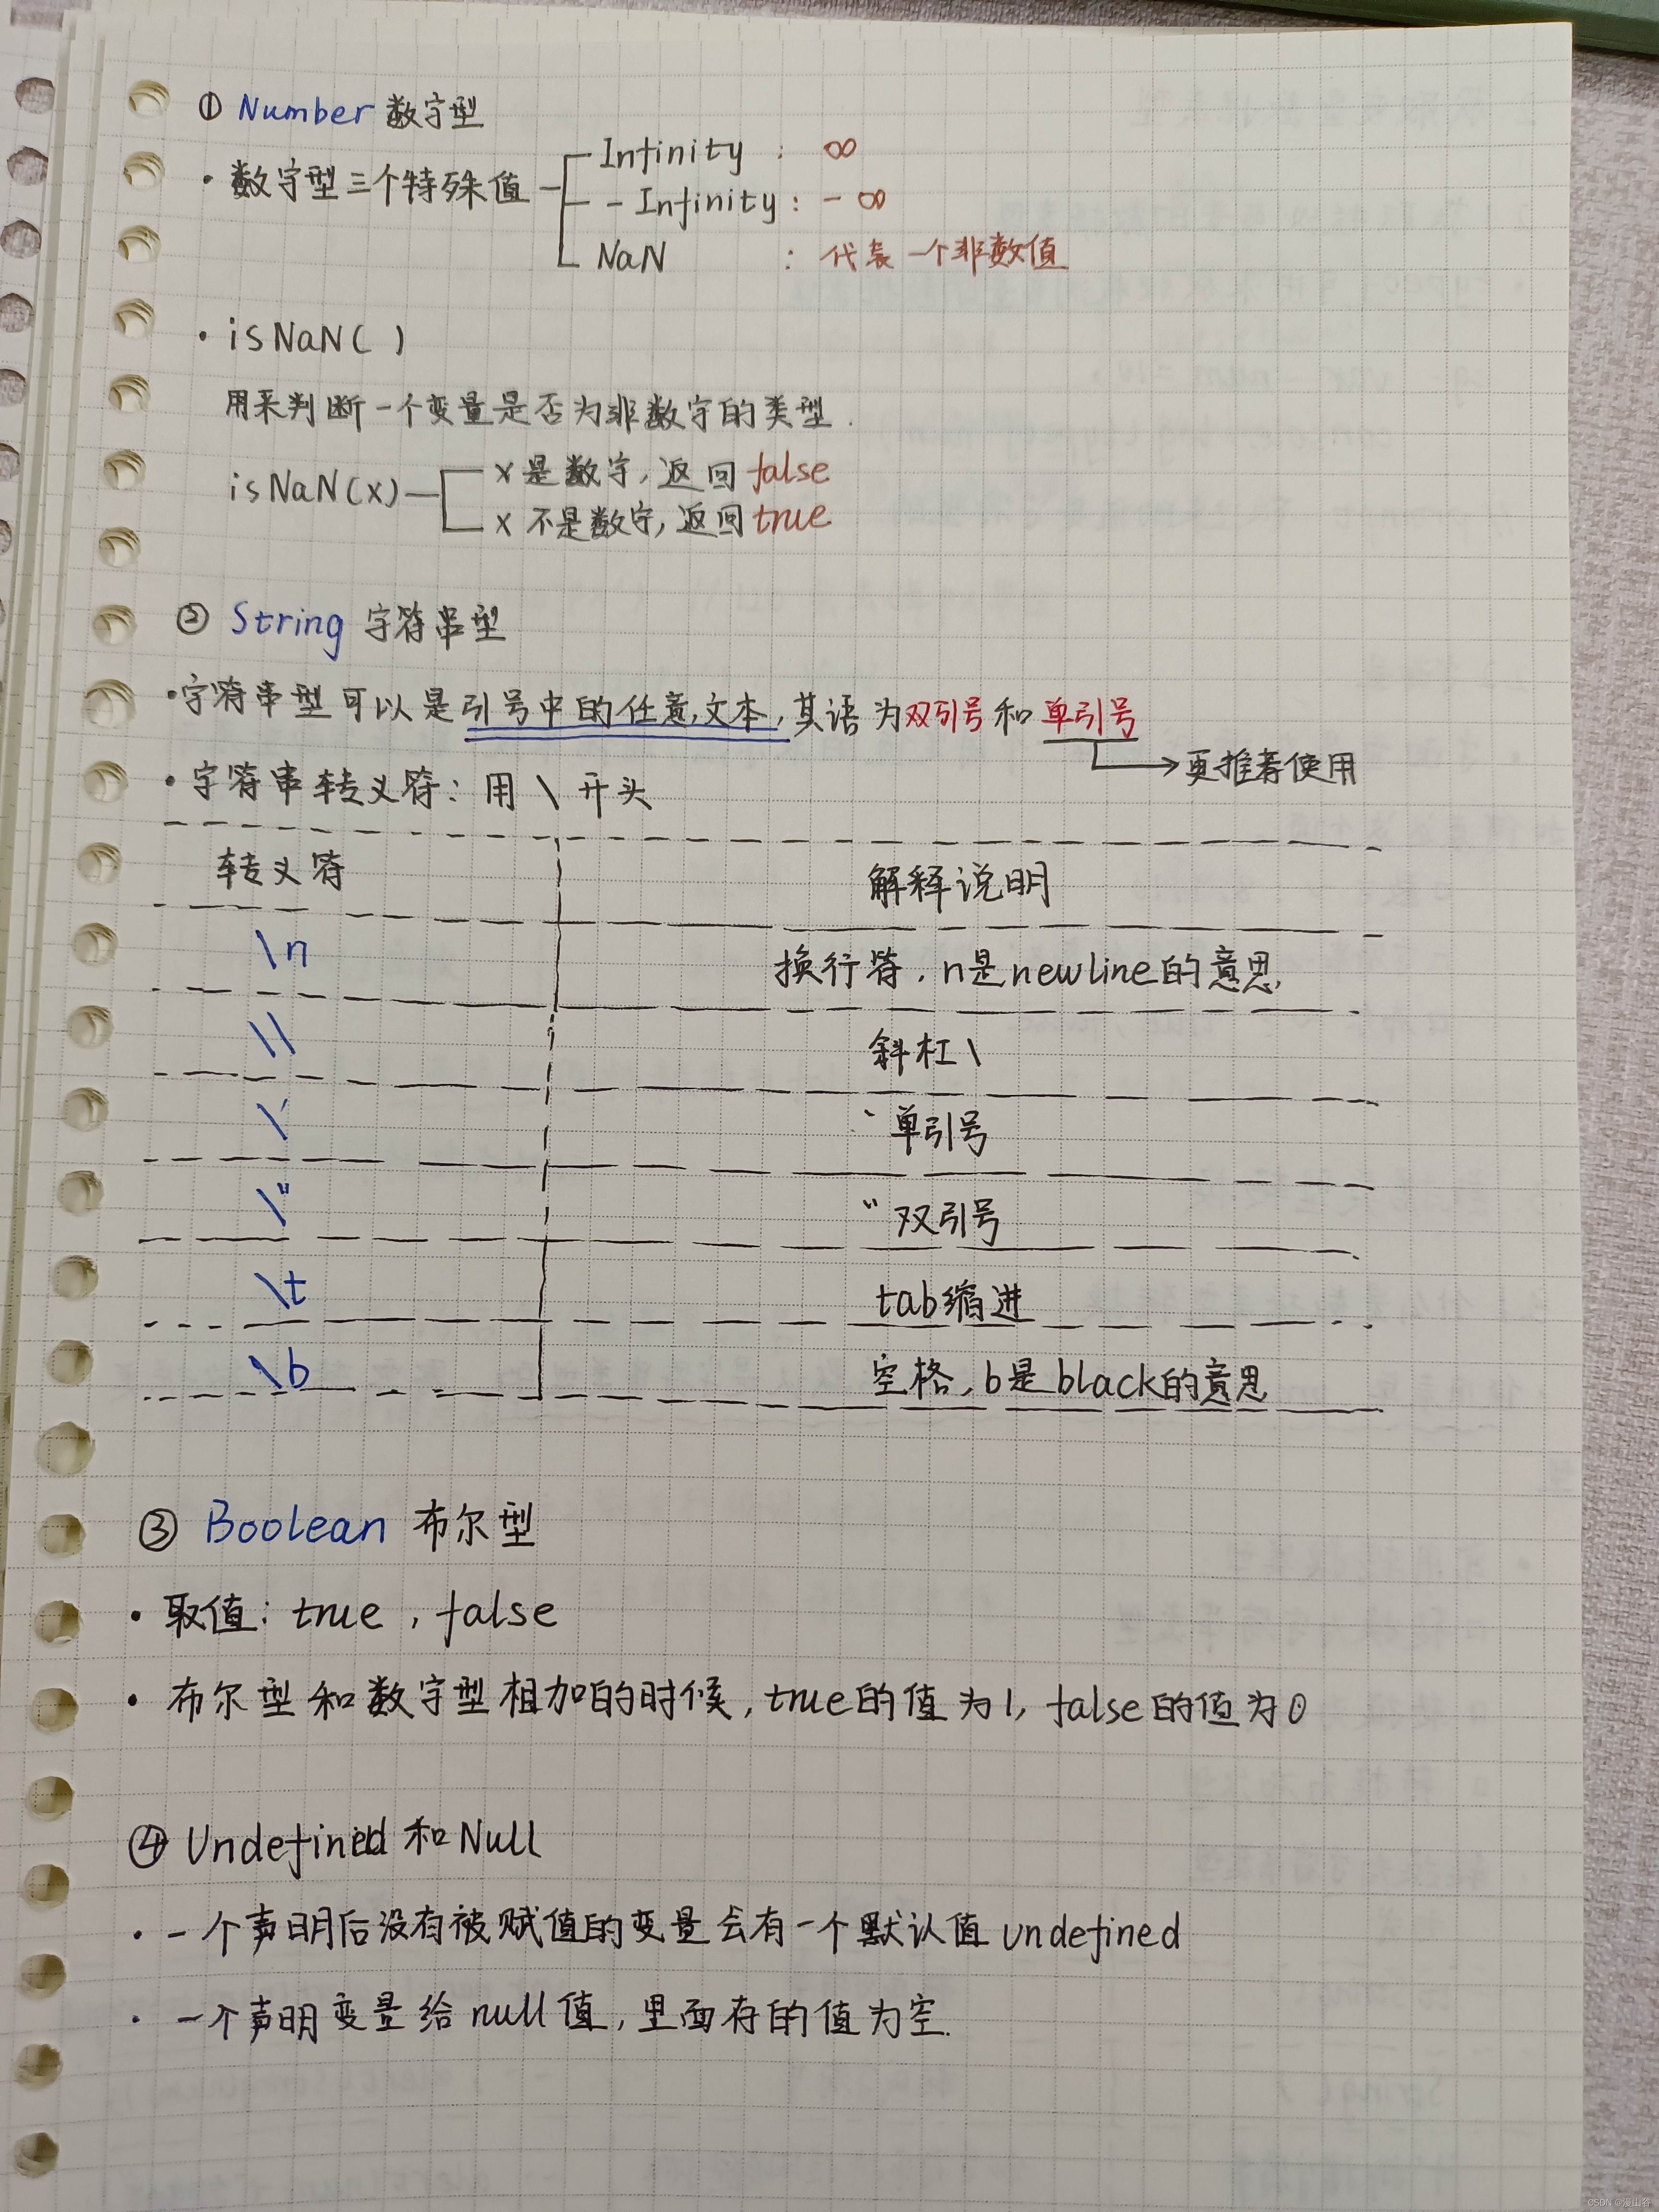 ① Number 数字型
· 数字型三个特殊值
Infinity : ∞
-Infinity : -∞
NaN : 代表一个非数值
· isNaN( )
用来判断一个变量是否为非数字的类型.
isNaN(x)
x 是数字, 返回 false
x 不是数字, 返回 true
② String 字符串型
·字符串型可以是引号中的任意文本, 其语为双引号和单引号
更推荐使用
·字符串转义符: 用 \ 开头
转义符 解释说明
\n 换行符, n是newline的意思,
\\ 斜杠\
\' ` 单引号
\" " 双引号
\t tab缩进
\b 空格, b是black的意思
③ Boolean 布尔型
· 取值: true , false
· 布尔型和数字型相加的时候, true的值为1, false的值为0
④ Undefined 和 Null
· 一个声明后没有被赋值的变量会有一个默认值 undefined
· 一个声明变量给 null 值, 里面存的值为空.
CSDN @漫山谷